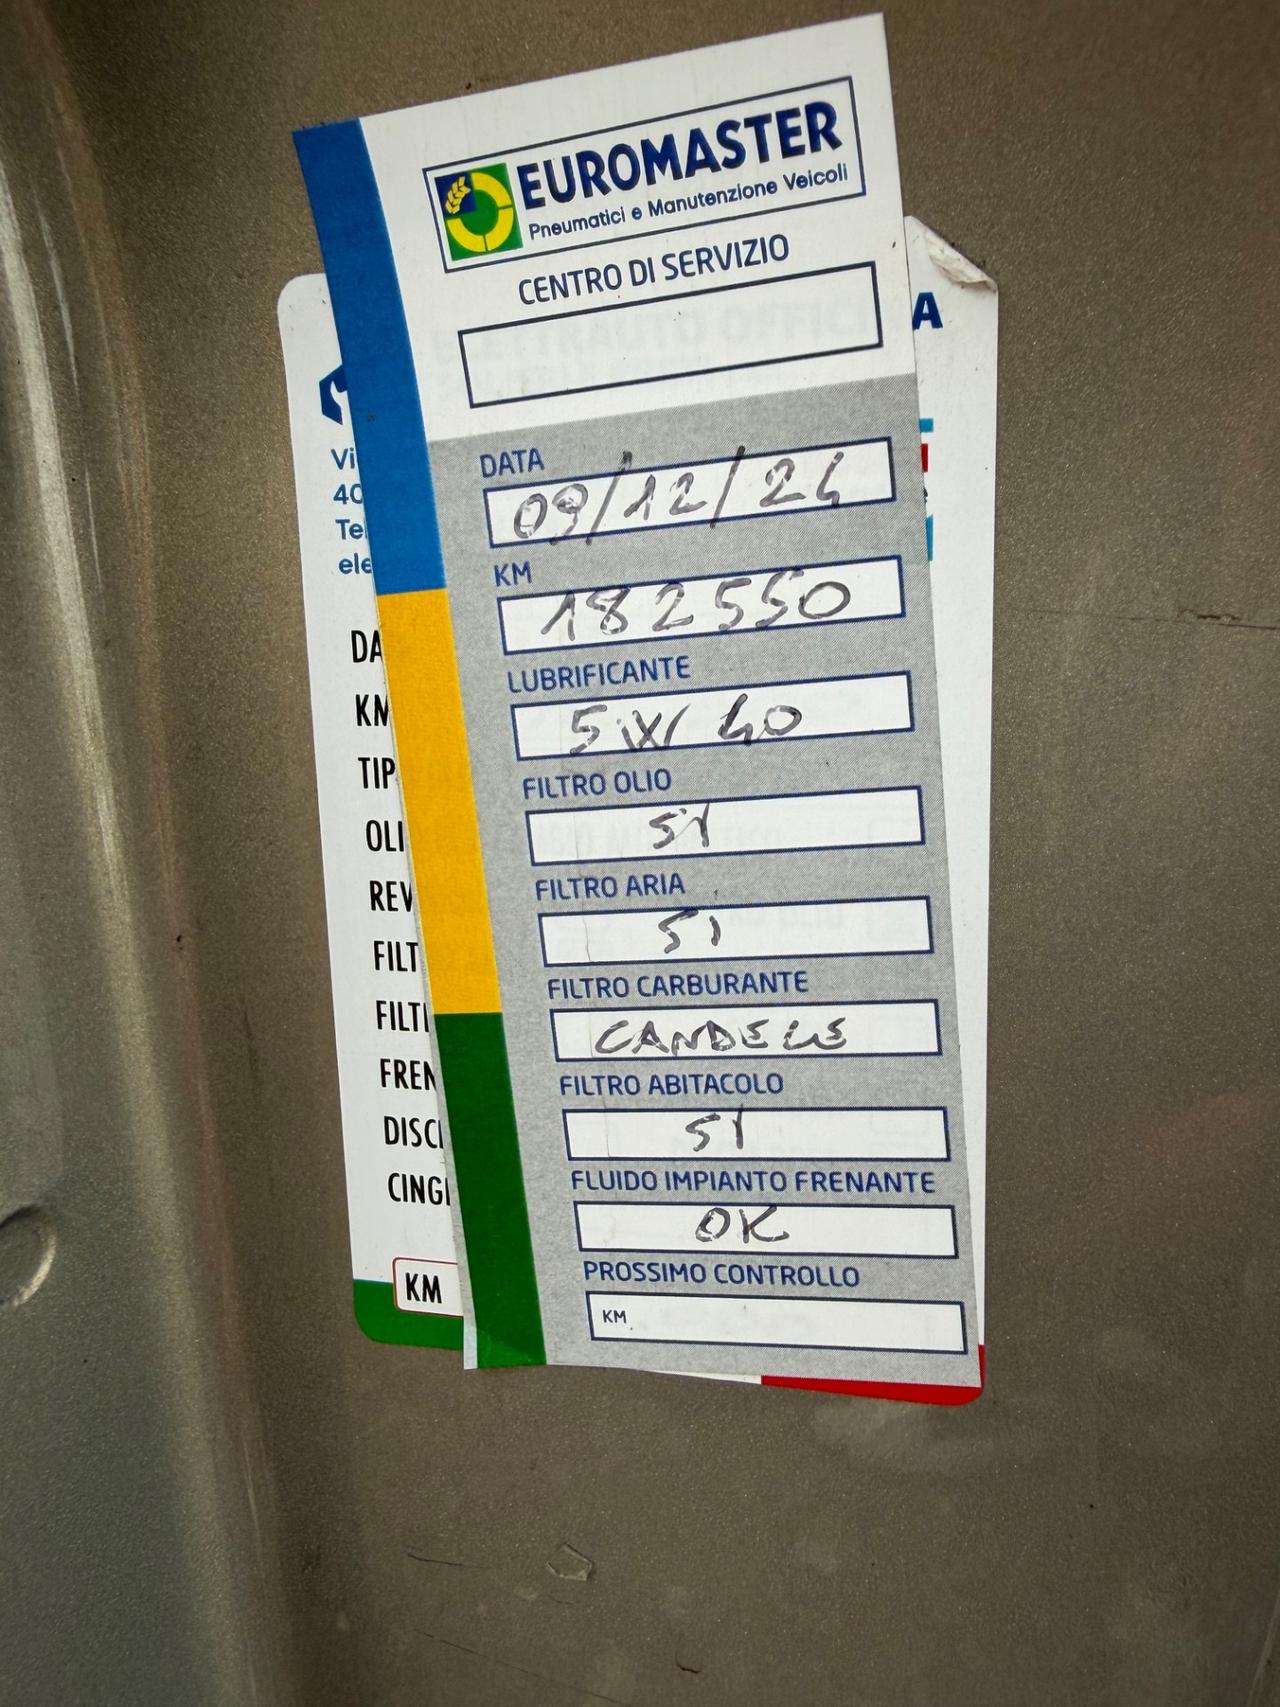 EUROMASTER
Pneumatici e Manutenzione Veicoli
CENTRO DI SERVIZIO
DATA
09/12/24
KM
182550
LUBRIFICANTE
5W40
FILTRO OLIO
SI
FILTRO ARIA
SI
FILTRO CARBURANTE
CANDELE
FILTRO ABITACOLO
SI
FLUIDO IMPIANTO FRENANTE
OK
PROSSIMO CONTROLLO
KM
A
Vi
40
Tel
ele
DA
KM
TIP
OLI
REV
FILT
FILT
FREN
DISC
CING
KM